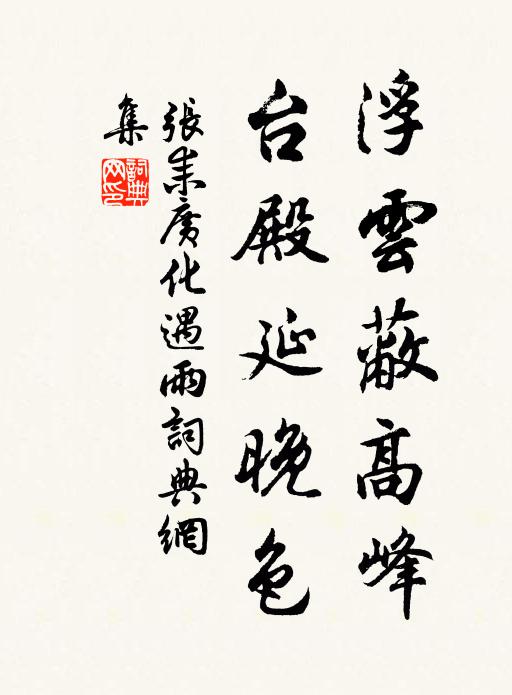 浮雲蔽高峰
台殿延晚色
張耒廣化遇雨詞典網
集
詞典
网印